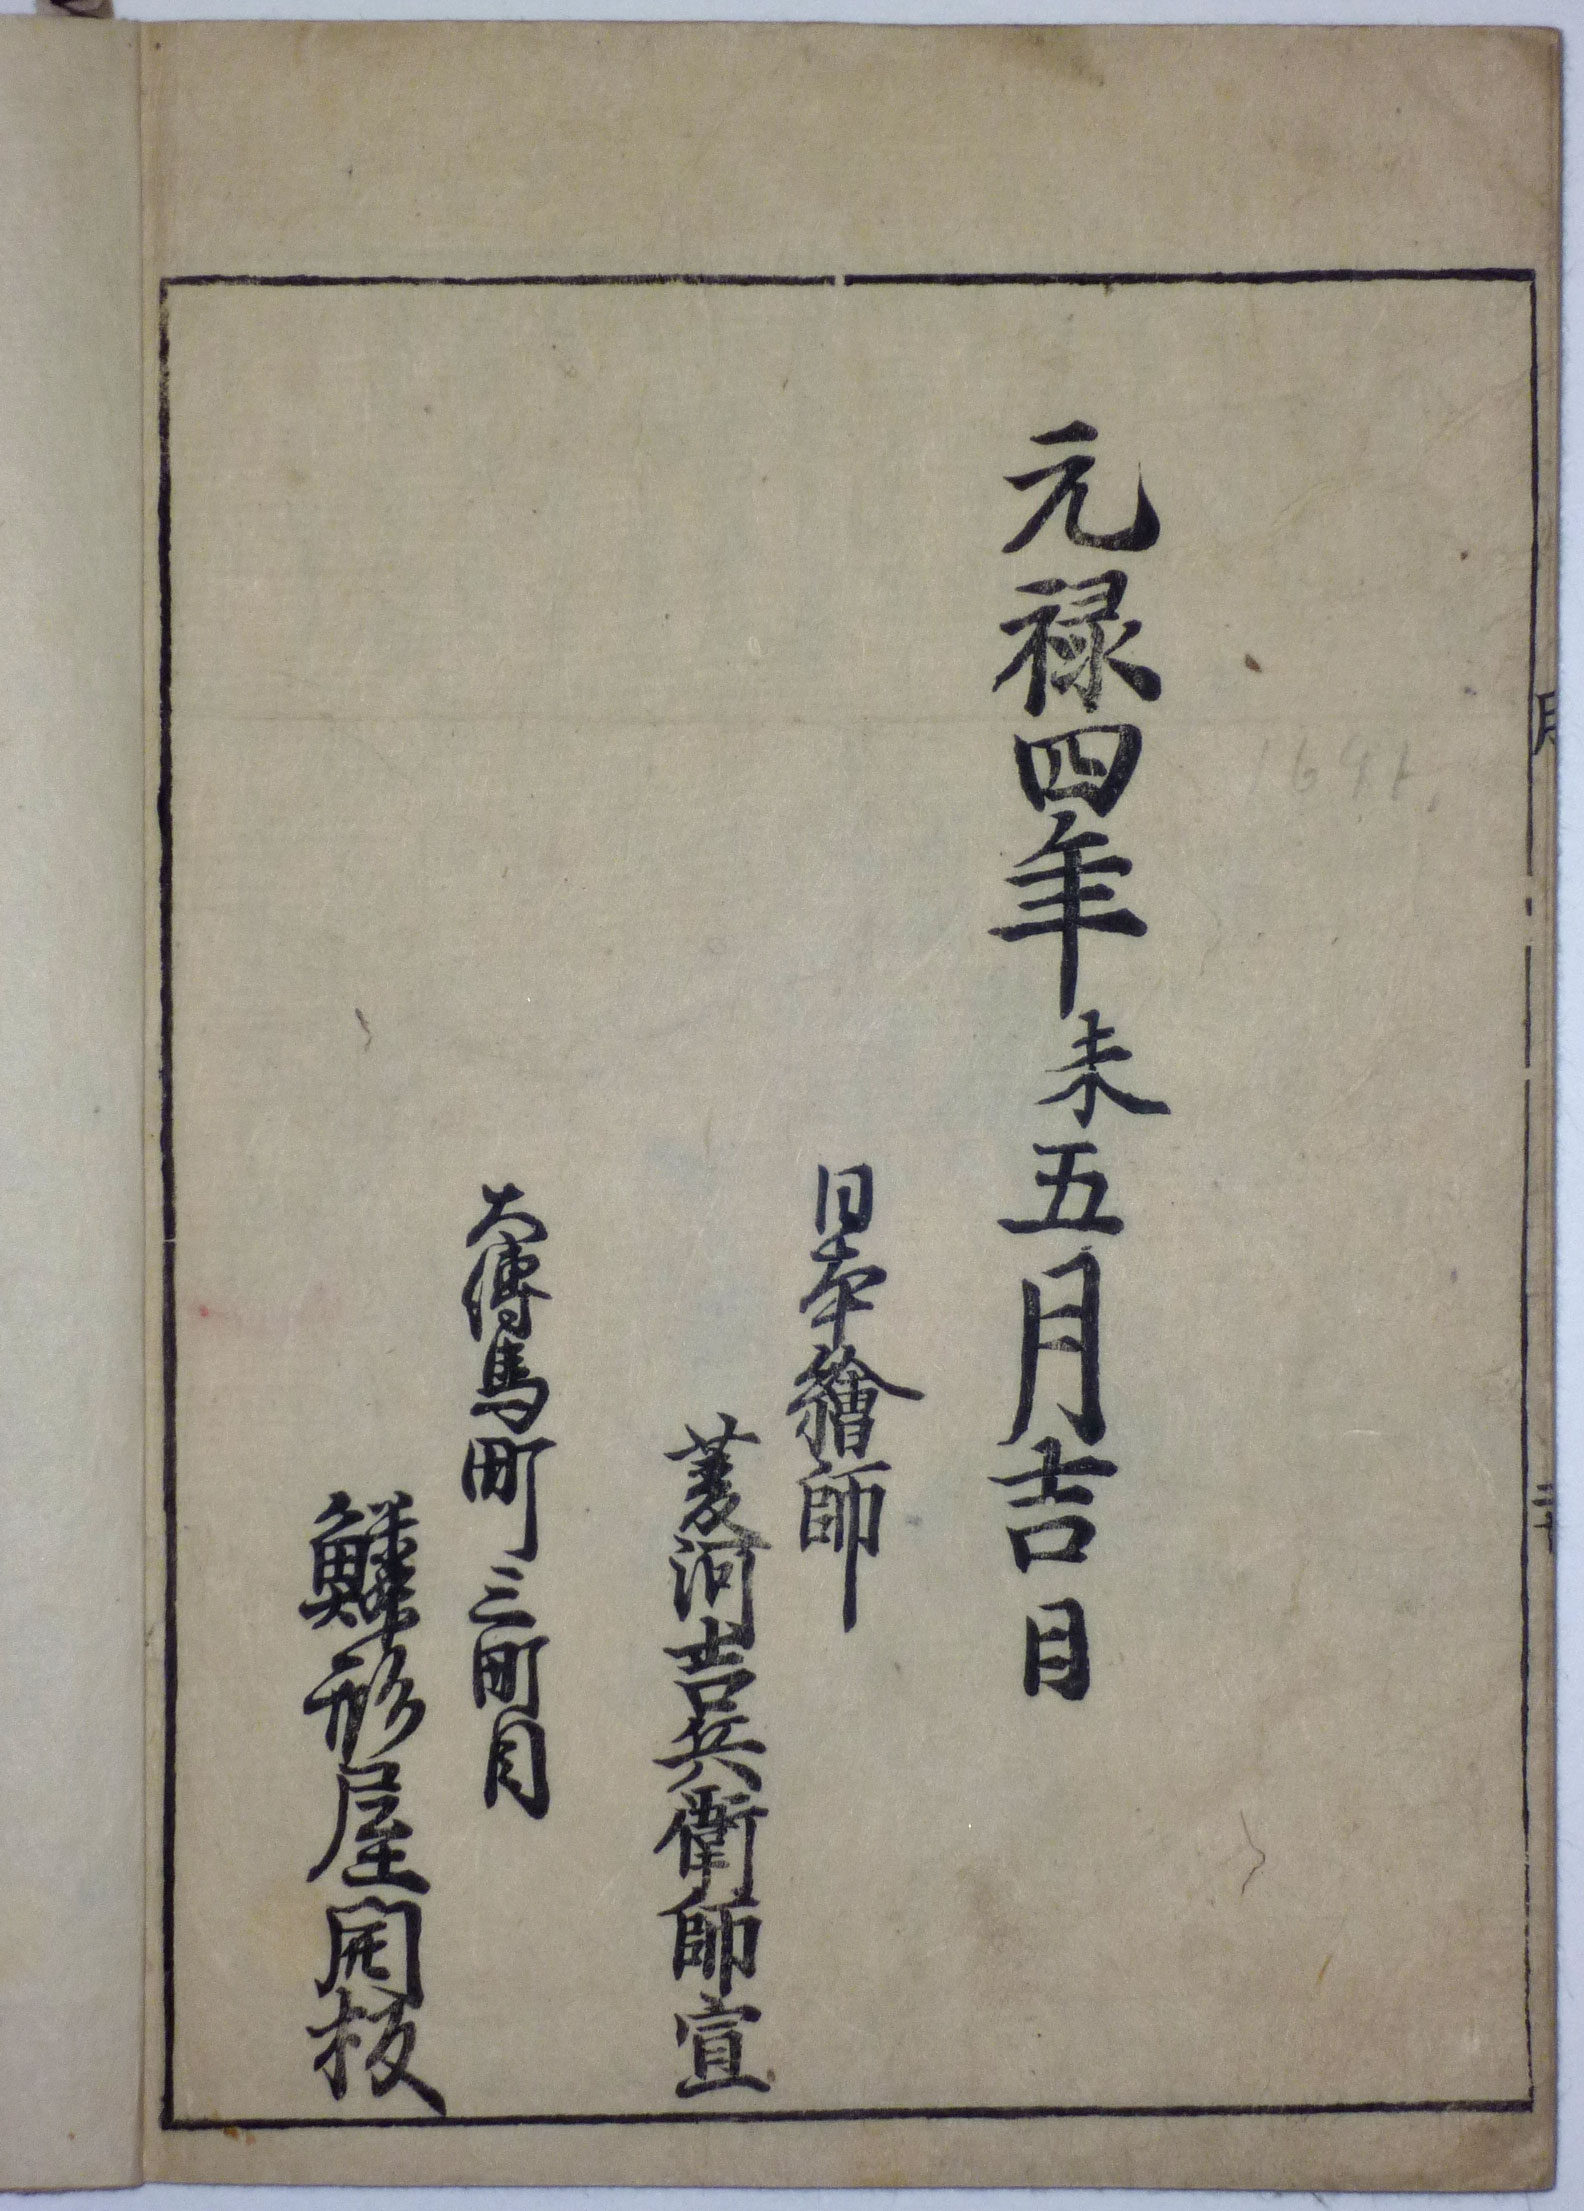 元禄四年未五月吉日
日本繪師
菱河吉兵衛師宣
大傳馬町三町目
鱗形屋開板
1691